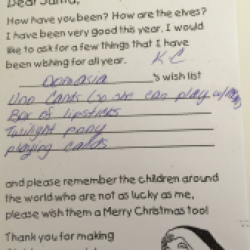 Dear Santa,
How have you been? How are the elves?
I have been very good this year. I would
like to ask for a few things that I have
been wishing for all year. KC
's wish list
Uno Cards (so she can play w/
Box of lipsticks
Twilight pony
playing cards
and please remember the children around
the world who are not as lucky as me,
please wish them a Merry Christmas too!
Thank you for making